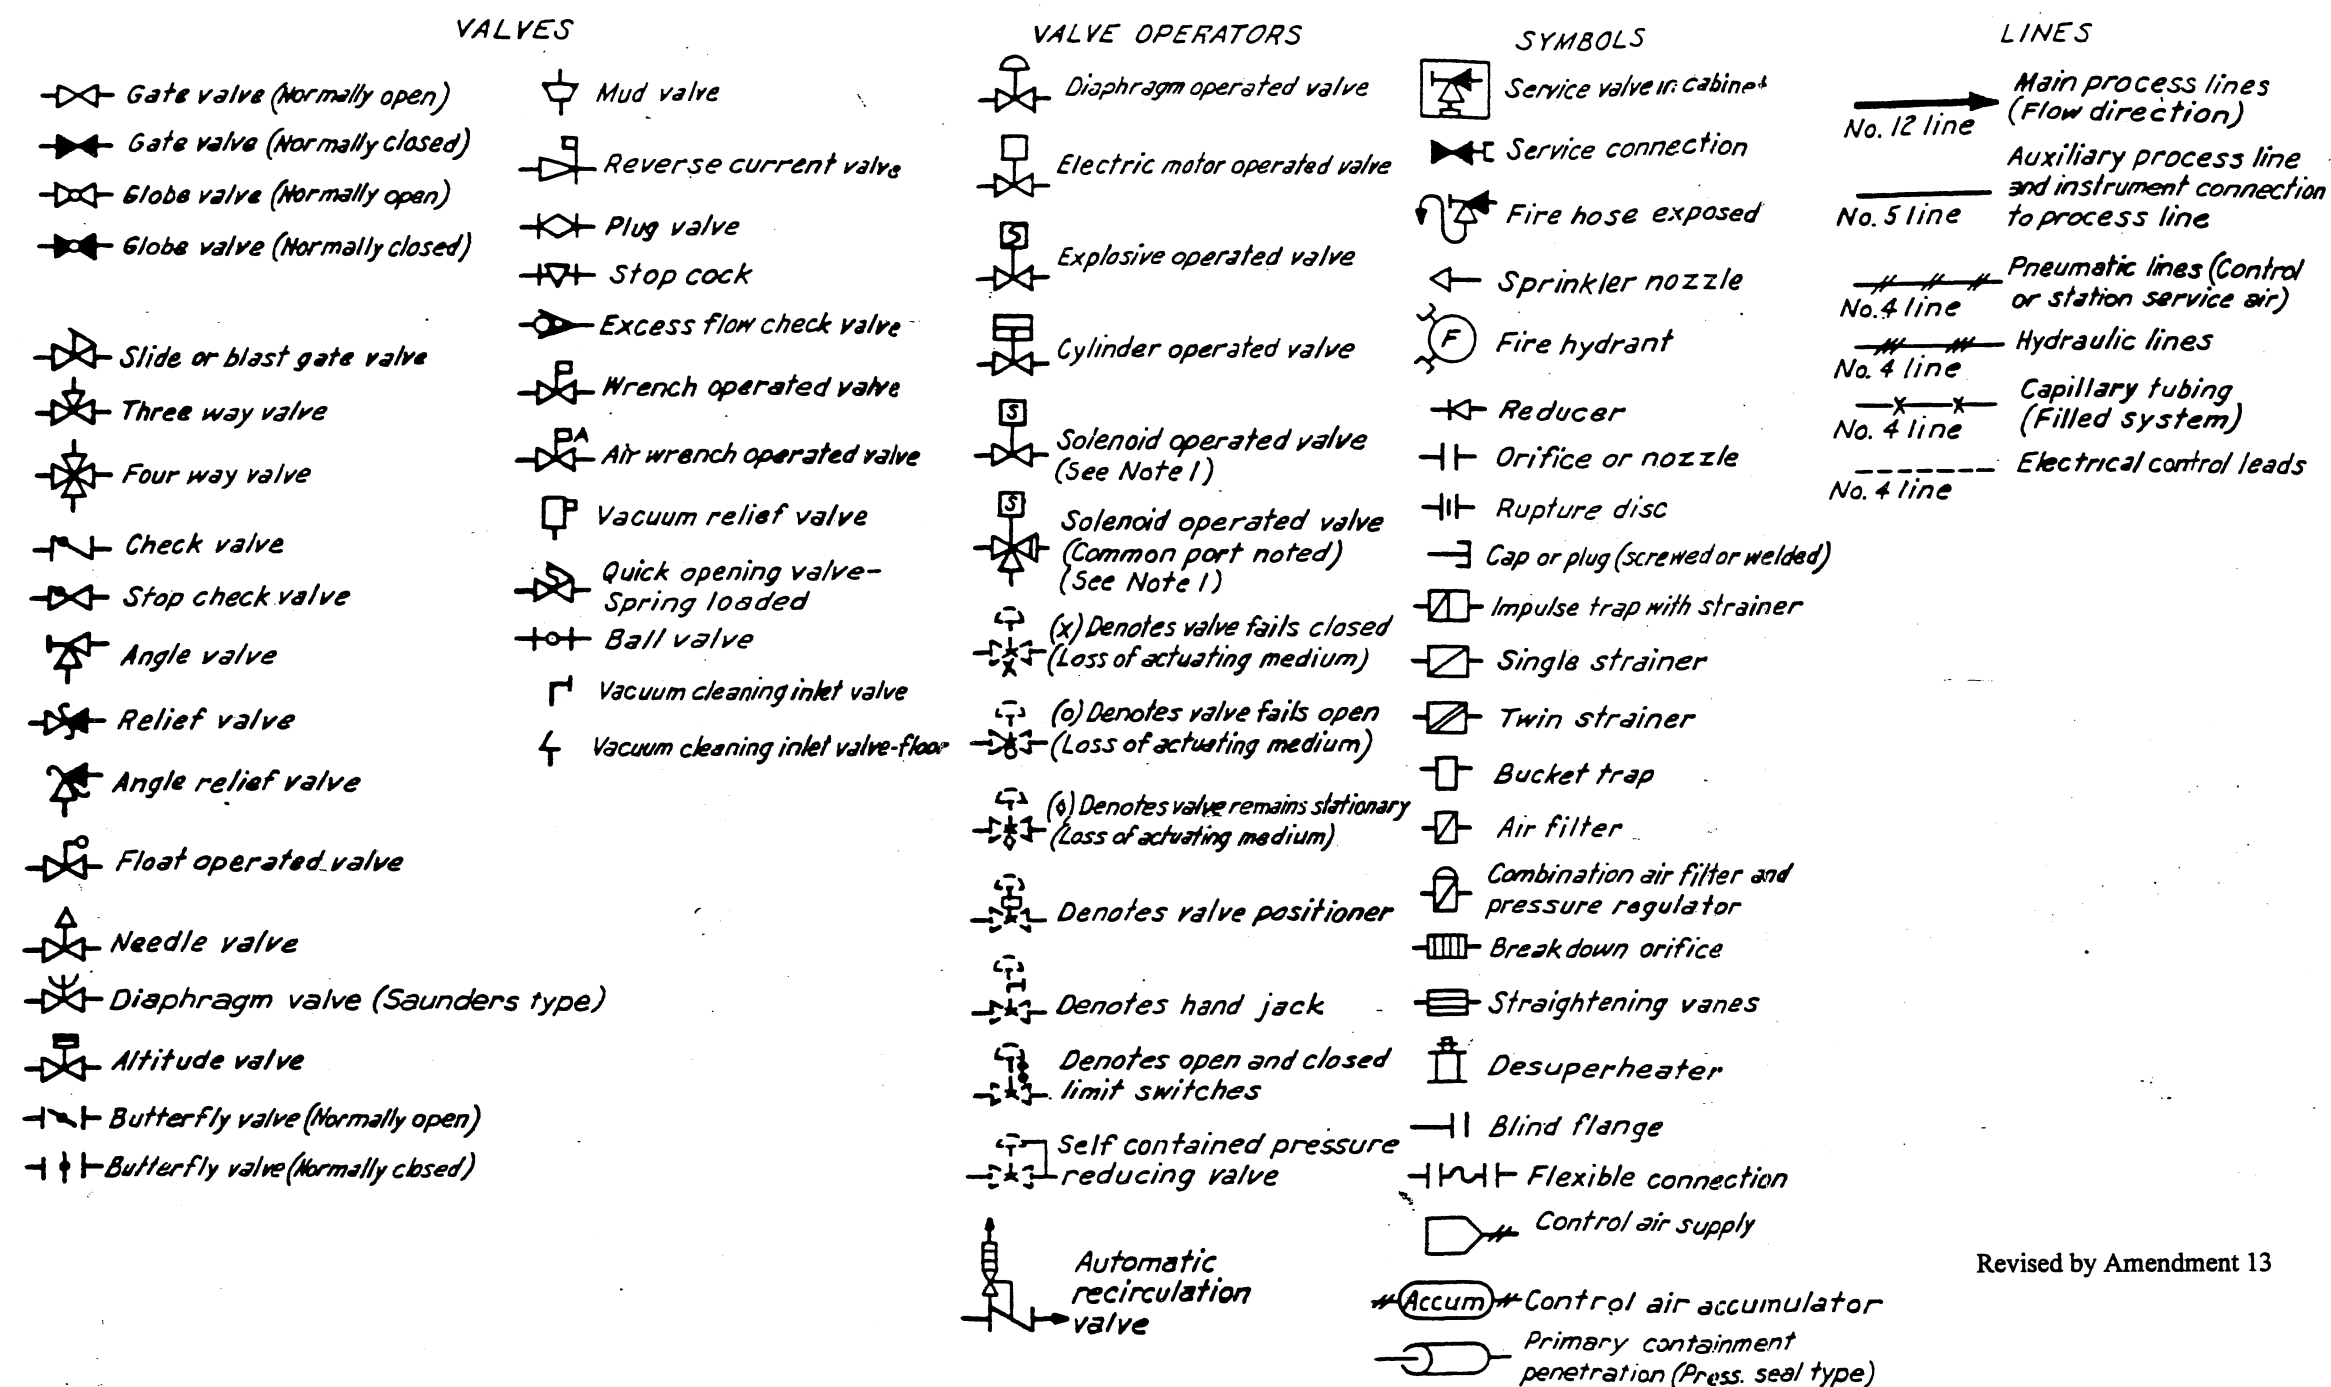 VALVES
Gate valve (Normally open)
Gate valve (Normally closed)
Globe valve (Normally open)
Globe valve (Normally closed)
Slide or blast gate valve
Three way valve
Four way valve
Check valve
Stop check valve
Angle valve
Relief valve
Angle relief valve
Float operated valve
Needle valve
Diaphragm valve (Saunders type)
Altitude valve
Butterfly valve (Normally open)
Butterfly valve (Normally closed)
Mud valve
Reverse current valve
Plug valve
Stop cock
Excess flow check valve
Wrench operated valve
A
Air wrench operated valve
Vacuum relief valve
Quick opening valve-
Spring loaded
Ball valve
Vacuum cleaning inlet valve
Vacuum cleaning inlet valve-floor
VALVE OPERATORS
Diaphragm operated valve
Electric motor operated valve
S
Explosive operated valve
Cylinder operated valve
S
Solenoid operated valve
(See Note 1)
S
Solenoid operated valve
(Common port noted)
(See Note 1)
(x) Denotes valve fails closed
(Loss of actuating medium)
(o) Denotes valve fails open
(Loss of actuating medium)
(◊) Denotes valve remains stationary
(Loss of actuating medium)
Denotes valve positioner
Denotes hand jack
Denotes open and closed
limit switches
Self contained pressure
reducing valve
Automatic
recirculation
valve
SYMBOLS
Service valve in cabinet
Service connection
Fire hose exposed
Sprinkler nozzle
F
Fire hydrant
Reducer
Orifice or nozzle
Rupture disc
Cap or plug (screwed or welded)
Impulse trap with strainer
Single strainer
Twin strainer
Bucket trap
Air filter
Combination air filter and
pressure regulator
Breakdown orifice
Straightening vanes
Desuperheater
Blind flange
Flexible connection
Control air supply
Accum
Control air accumulator
Primary containment
penetration (Press. seal type)
LINES
No. 12 line
Main process lines
(Flow direction)
No. 5 line
Auxiliary process line
and instrument connection
to process line
No. 4 line
Pneumatic lines (Control
or station service air)
No. 4 line
Hydraulic lines
No. 4 line
Capillary tubing
(Filled system)
No. 4 line
Electrical control leads
Revised by Amendment 13